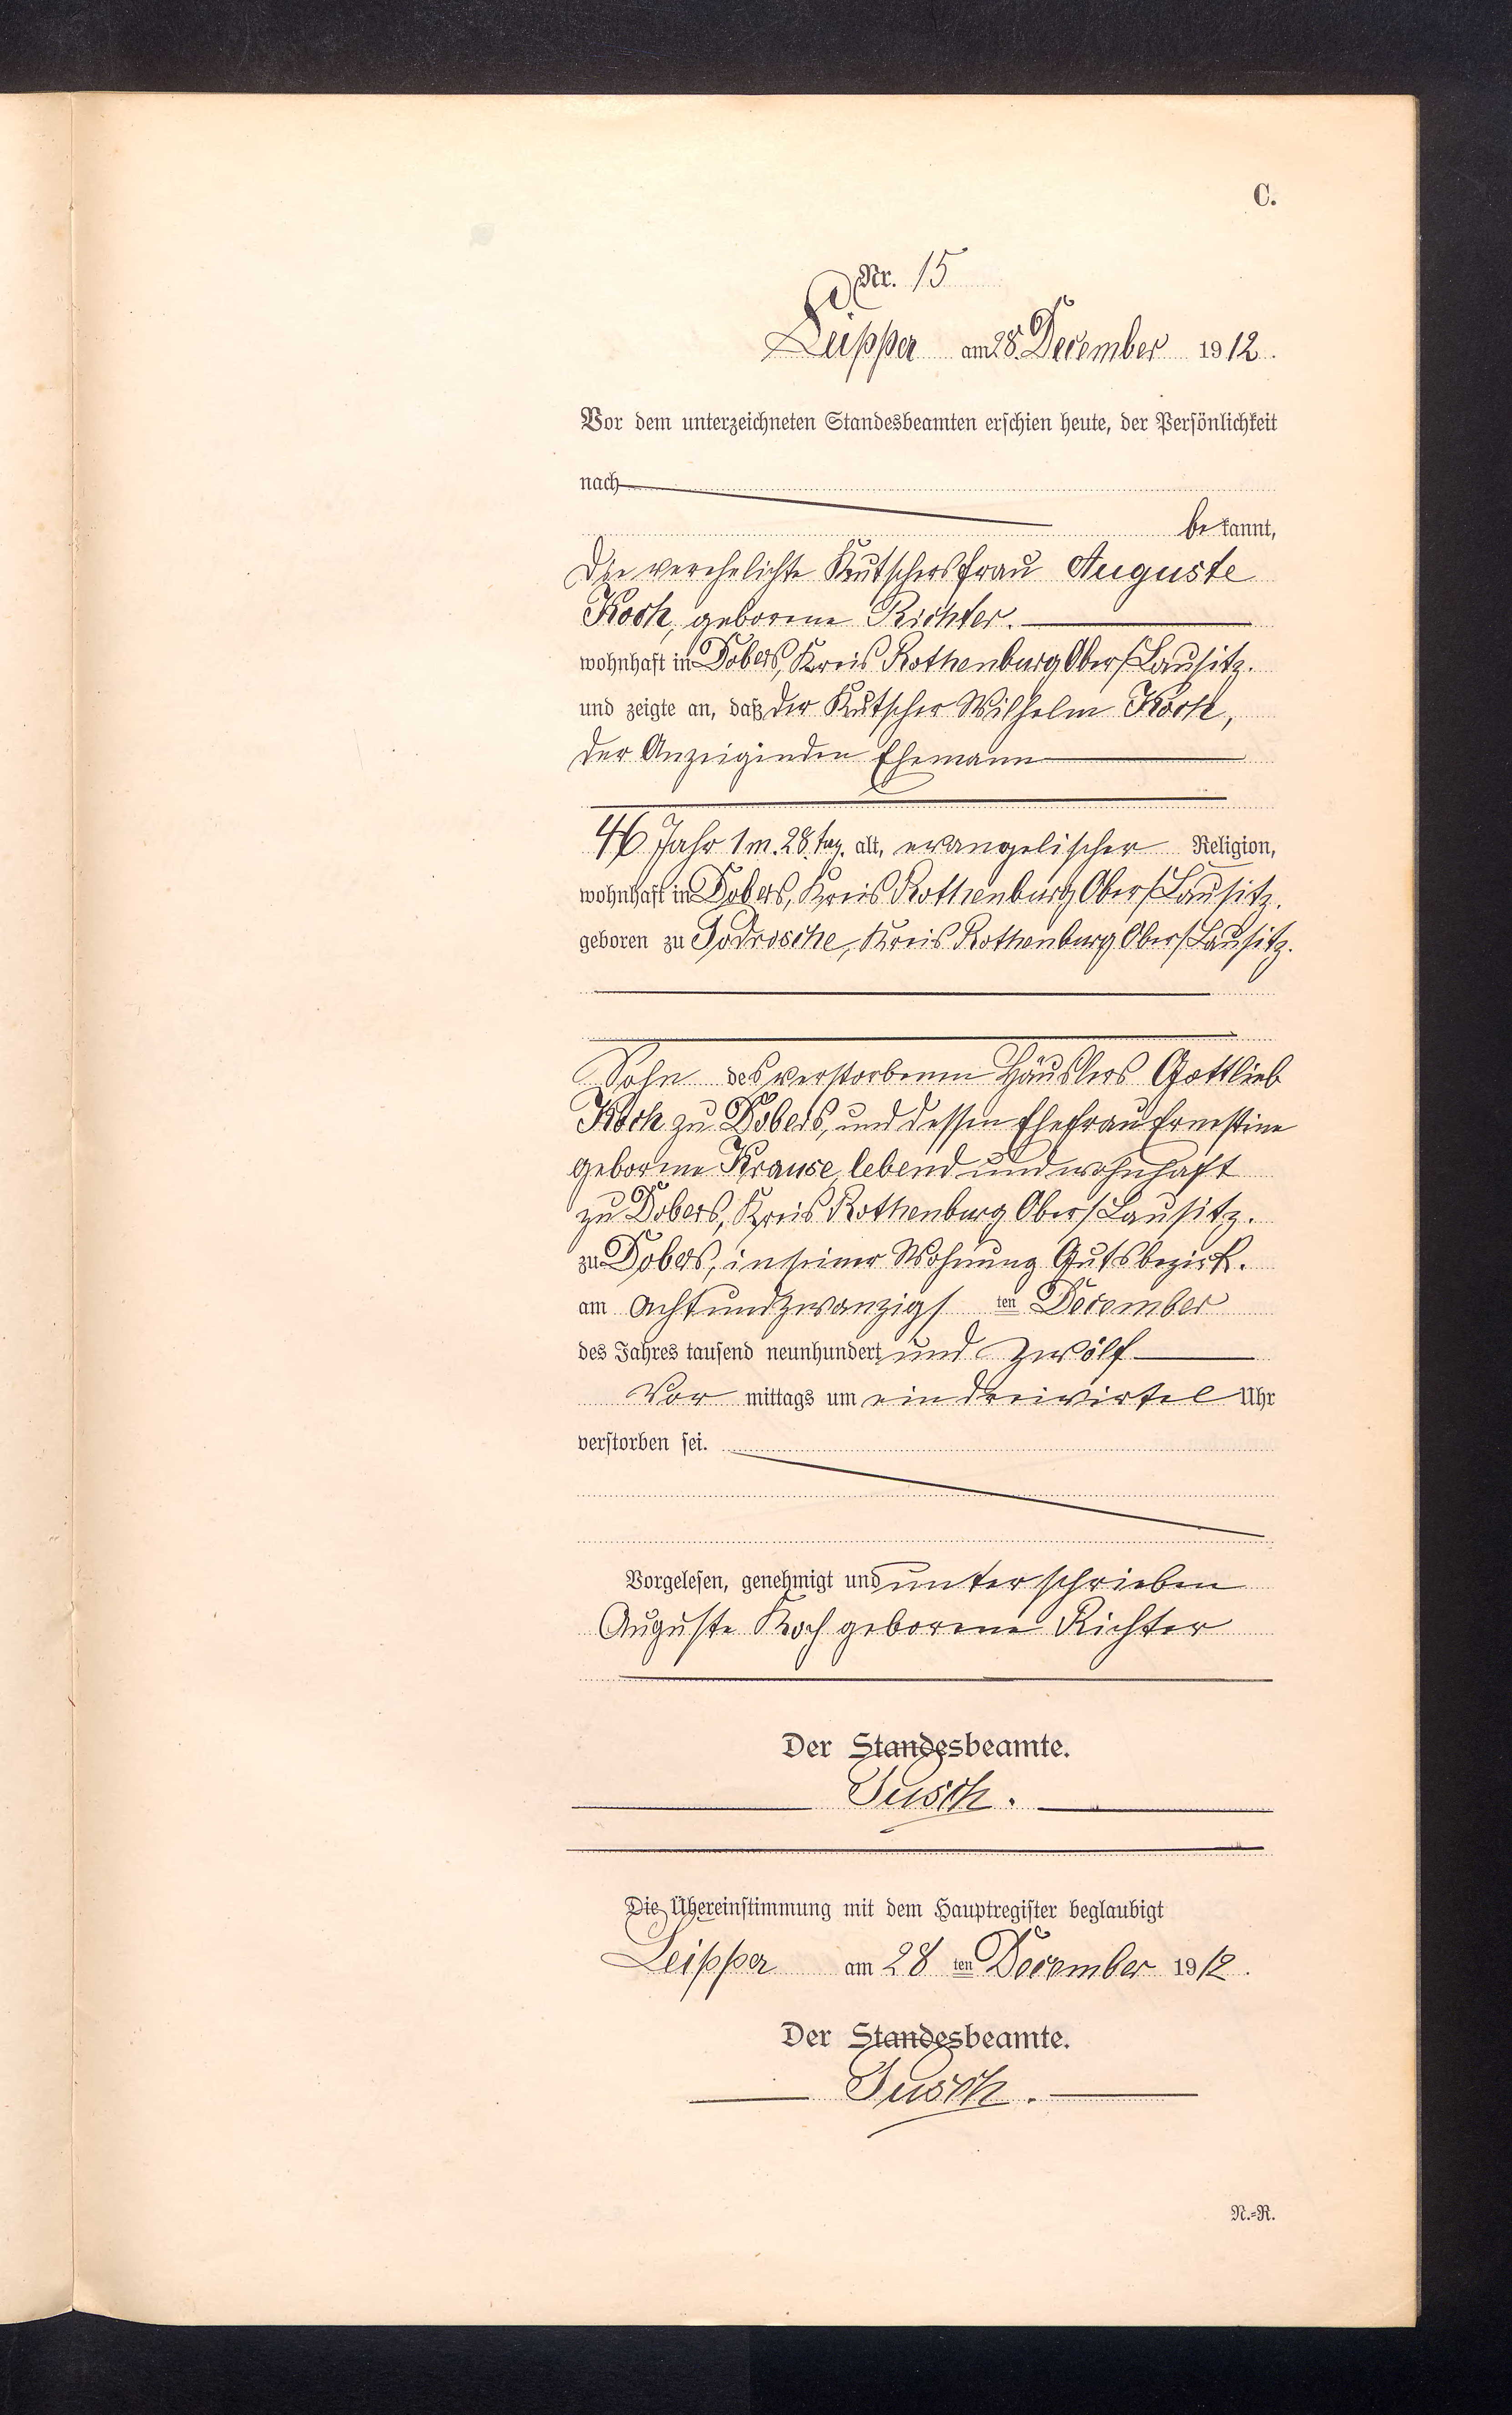 C.
Nr. 15
Leippa am 28. December 1912.
Vor dem unterzeichneten Standesbeamten erschien heute, der Persönlichkeit
nach
bekannt,
die verehelichte Kutschersfrau Auguste
Koch, geborene Richter.
wohnhaft in Dobers, Kreis Rothenburg Ober/Lausitz.
und zeigte an, daß der Kutscher Wilhelm Koch,
der Anzeiginden Ehemann
46 Jahr 1 m. 28. tag. alt, evangelischer Religion,
wohnhaft in Dobers, Kreis Rothenburg Ober/Lausitz.
geboren zu Podrosche, Kreis Rothenburg Ober/Lausitz.
Sohn des verstorbenen Häuslers Gottlieb
Koch zu Dobers, und dessen Ehefrau Ernestine
geborene Krause, lebend und wohnhaft
zu Dobers, Kreis Rothenburg Ober/Lausitz.
zu Dobers, in seiner Wohnung Gutsbezirk.
am achtundzwanzigs ten December
des Jahres tausend neunhundert und zwölf
Vor mittags um ein dreivirtel Uhr
verstorben sei.
Vorgelesen, genehmigt und unterschrieben
Auguste Koch geborene Richter
Der Standesbeamte.
Die Übereinstimmung mit dem Hauptregister beglaubigt
Leippa am 28 ten December 1912.
Der Standesbeamte.
N.-R.